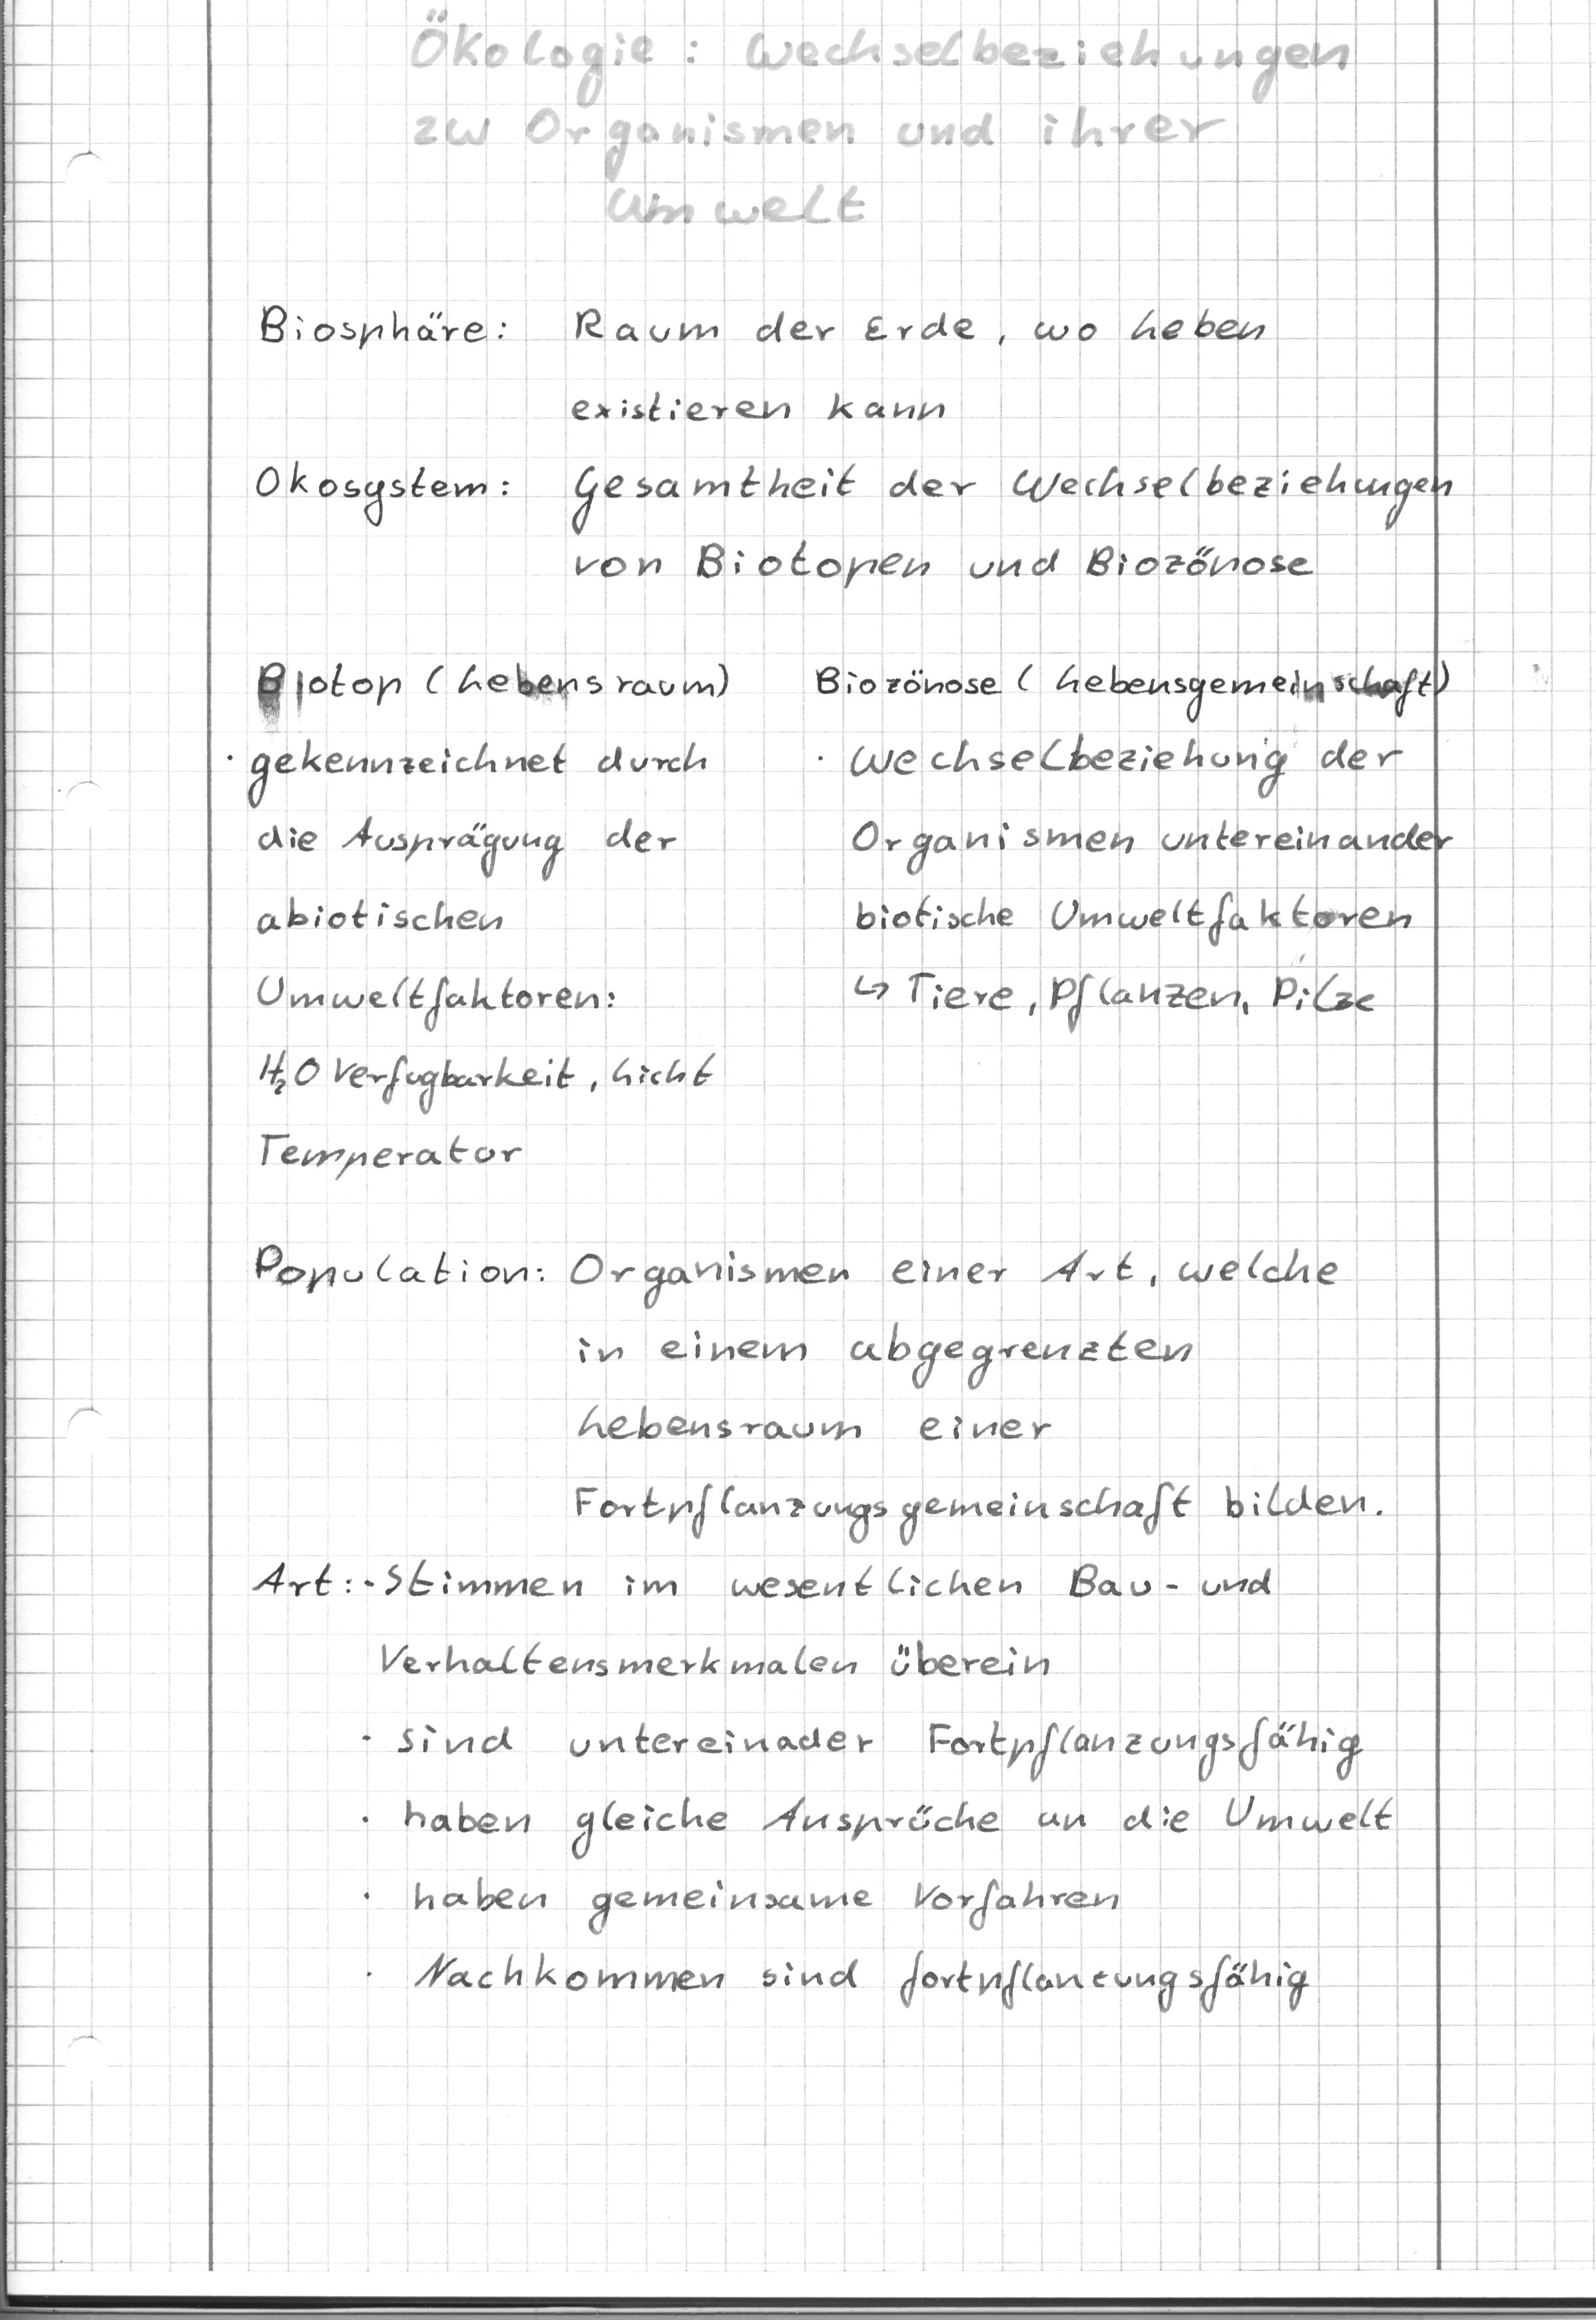 Ökologie: Wechselbeziehungen
zw Organismen und ihrer
Umwelt
Biosphäre: Raum der Erde, wo Leben
existieren kann
Okosystem: Gesamtheit der Wechselbeziehungen
von Biotopen und Biozönose
Biotop (Lebensraum)
· gekennzeichnet durch
die Ausprägung der
abiotischen
Umweltfaktoren:
H₂O Verfugbarkeit, Licht
Temperatur
Biozönose (Lebensgemeinschaft)
· Wechselbeziehung der
Organismen untereinander
biotische Umweltfaktoren
↳ Tiere, Pflanzen, Pilze
Population: Organismen einer Art, welche
in einem abgegrenzten
Lebensraum einer
Fortpflanzungsgemeinschaft bilden.
Art: · Stimmen im wesentlichen Bau- und
Verhaltensmerkmalen überein
· sind untereinader Fortpflanzungsfähig
· haben gleiche Ansprüche an die Umwelt
· haben gemeinsame Vorfahren
· Nachkommen sind fortpflanzungsfähig